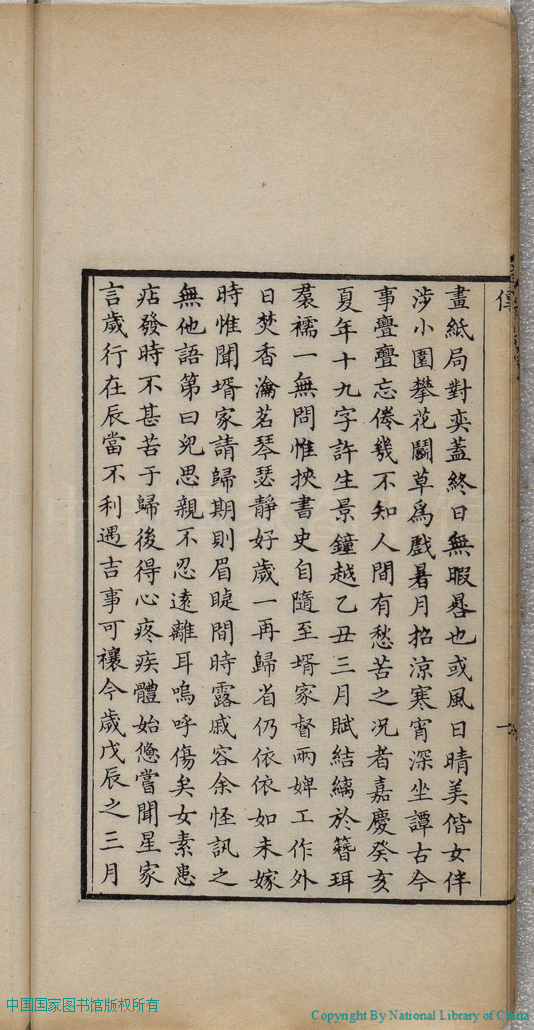 傳
畫紙局對奕蓋終日無暇晷也或風日晴美偕女伴
涉小園攀花鬭草爲戲暑月招涼寒宵深坐譚古今
事亹亹忘倦幾不知人間有愁苦之况者嘉慶癸亥
夏年十九字許生景鐘越乙丑三月賦結縭於簪珥
裠襦一無問惟挾書史自隨至壻家督兩婢工作外
日焚香瀹茗琴瑟靜好歲一再歸省仍依依如未嫁
時惟聞壻家請歸期則眉睫間時露戚容余怪訊之
無他語第曰兒思親不忍遠離耳嗚呼傷矣女素患
痁發時不甚苦于歸後得心疼疾體始憊嘗聞星家
言歲行在辰當不利遇吉事可禳今歲戊辰之三月
中国国家图书馆版权所有
Copyright By National Library of China